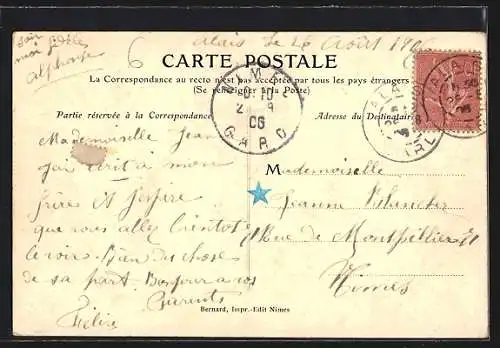 Alais le 26 Août 1906
CARTE POSTALE
La Correspondance au recto n'est pas acceptée par tous les pays étrangers
(Se renseigner à la Poste)
Partie réservée à la Correspondance
Adresse du Destinataire
NIMES
06
GARD
ALAIS
Mademoiselle Jeanne
J'ai écrit à mon
frère et j'espère
que vous allez bientôt
le voir. Bien du chose
de sa part. Bonjour à vos
Parents
Mademoiselle
Jeanne
Rue de Montpellier 21
Nimes
Bernard, Impr.-Edit Nimes